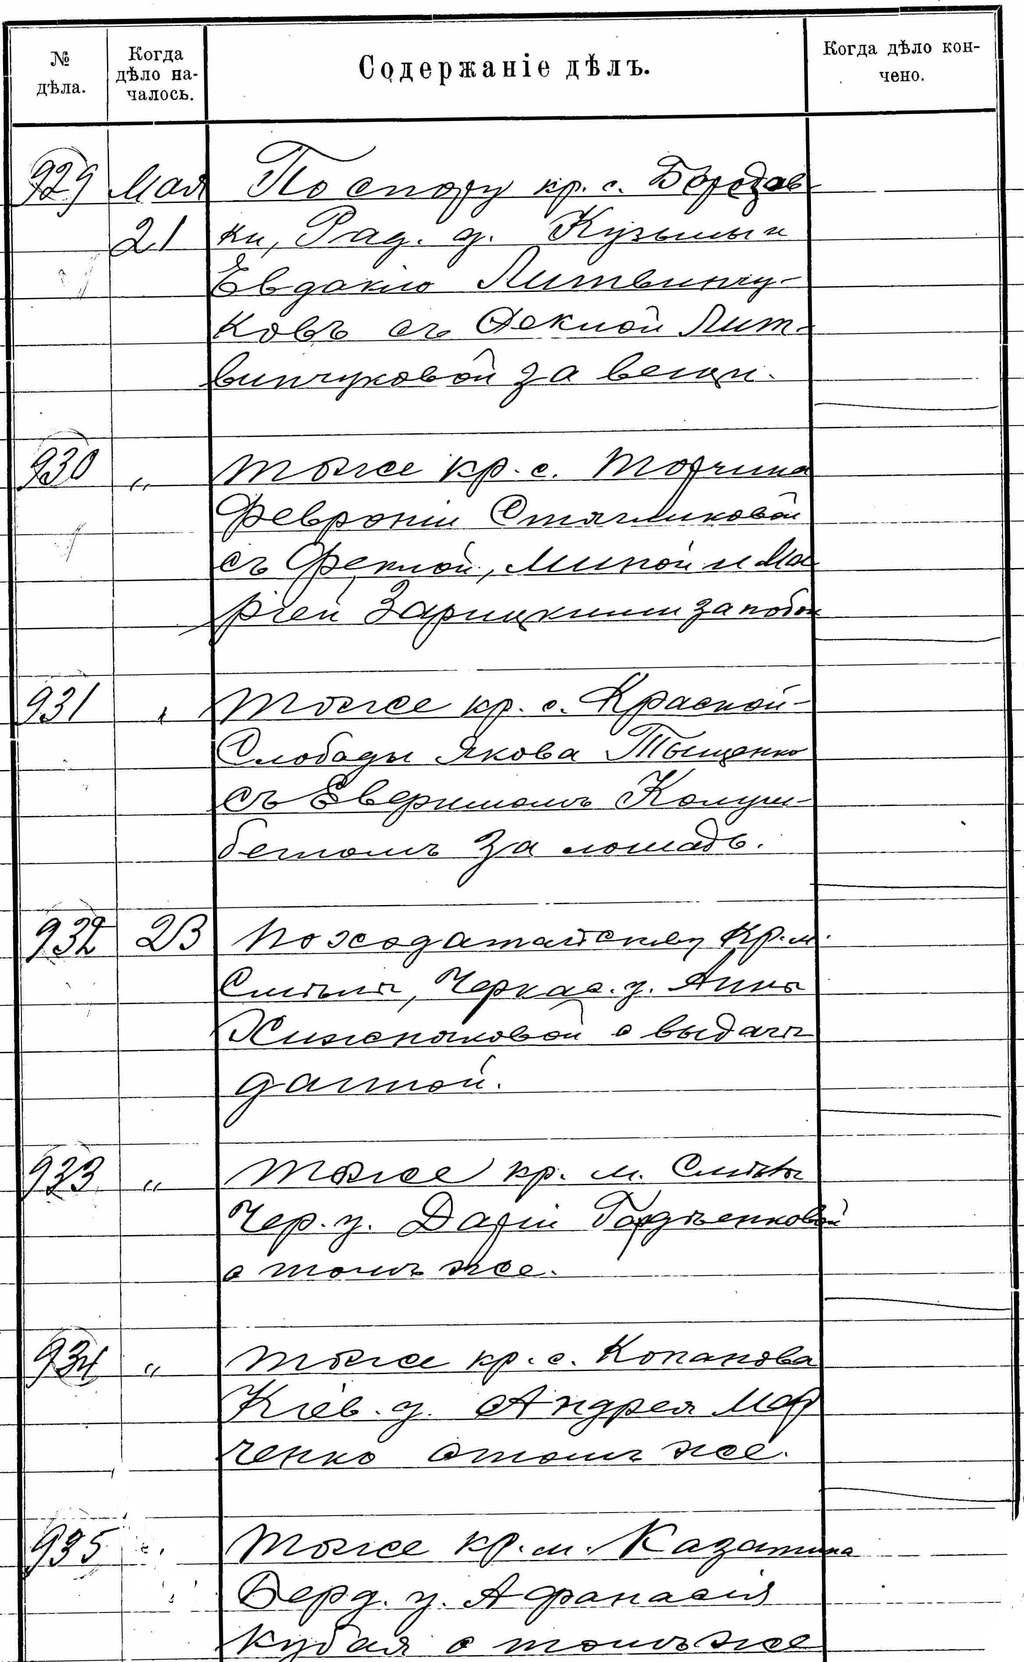 № дѣла.
Когда дѣло началось.
Содержаніе дѣлъ.
Когда дѣло кончено.
929 Мая По спору кр. с. Бородав-
21 ки, Рад. у. Кузьмы и
Евдокіи Литвинчу-
ковъ съ Феклой Лит-
винчуковой за вещи.
930 „ тоже кр. с. Торчина
Февроніи
съ Феклой, Миной и Ма
ріей Зарицкими за побои
931 „ тоже кр. с. Красной-
Слободы Якова Тыщенко
съ Евфимомъ
за лошадь.
932 23 по ходатайству кр. м.
Смѣлы, Черкас. у. Анны
Хижняковой о выдачѣ
данной.
933 „ тоже кр. м. Смѣлы
Чер. у. Даріи Гордѣенковой
о томъ же.
934 „ тоже кр. с. Копачова
Кіев. у. Андрея Мар
ченко о томъ же.
935 „ тоже кр. м. Казатина
Берд. у. Афанасія
Кубая о томъ же